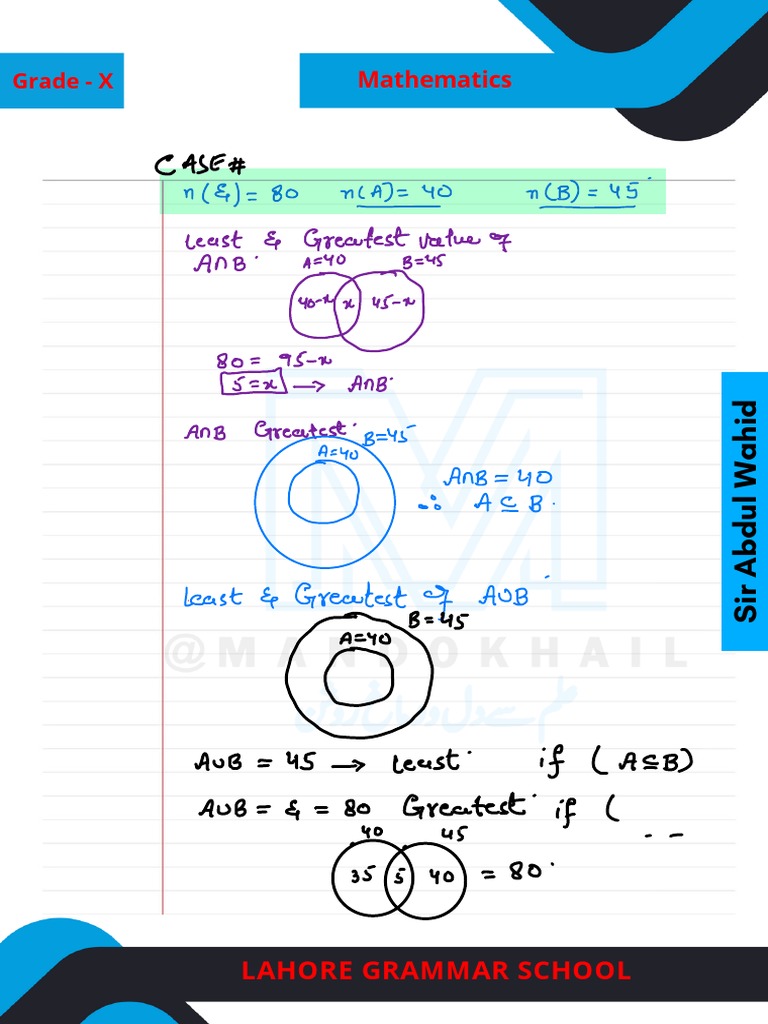 Grade - X
Mathematics
CASE#
n(ξ) = 80 n(A) = 40 n(B) = 45
Least & Greatest value of
A∩B.
A=40 B=45
40-x x 45-x
80 = 95-x
5=x → A∩B.
A∩B Greatest.
B=45
A=40
A∩B = 40
∴ A ⊆ B.
Least & Greatest of A∪B
B=45
A=40
@MANDOKHAIL
A∪B = 45 → Least. if (A⊆B)
A∪B = ξ = 80 Greatest. if (
40 45
35 5 40 = 80.
Sir Abdul Wahid
LAHORE GRAMMAR SCHOOL